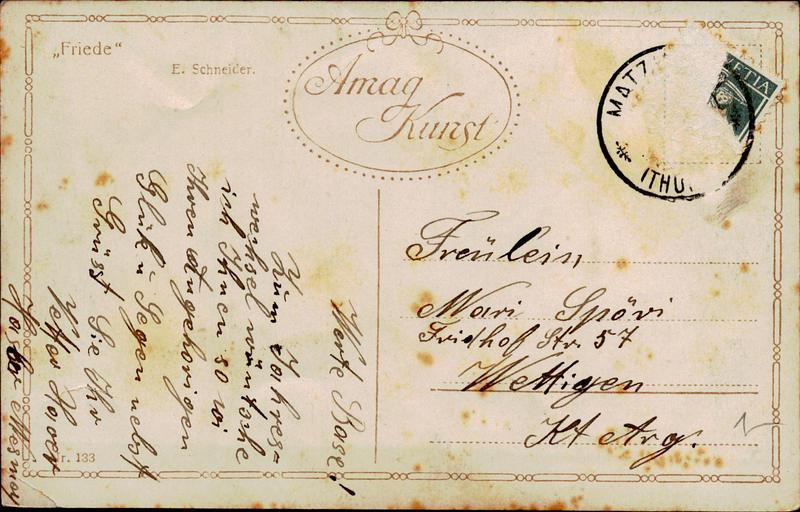 „Friede“
E. Schneider.
Amag
Kunst
MATZ
(THU
VETIA
Werte Base!
Zum Jahres=
wechsel wünsche
ich Ihnen so wi
Ihren Angehörigen
Glük u Segen nebst
Grüsst Sie Ihr
Vetter
Nr. 133
Freulein
Mari Spöri
Fridhof Str. 57
Wettigen
Kt Arg.